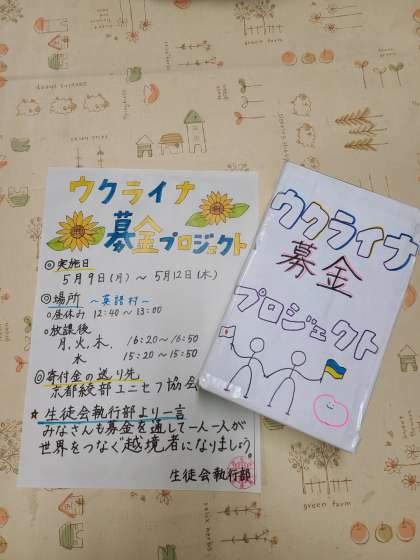 ウクライナ
募金プロジェクト
◎実施日
5月9日(月)～5月12日(木)
◎場所 ～英語村～
○昼休み 12:40～13:00
○放課後
月、火、木、16:20～16:50
水 15:20～15:50
◎寄付金の送り先
京都綾部ユニセフ協会
☆生徒会執行部より一言
みなさんも募金を通して一人一人が
世界をつなぐ越境者になりましょう。
生徒会執行部
ウクライナ
募金
プロジェクト
green farm
green farm
green farm